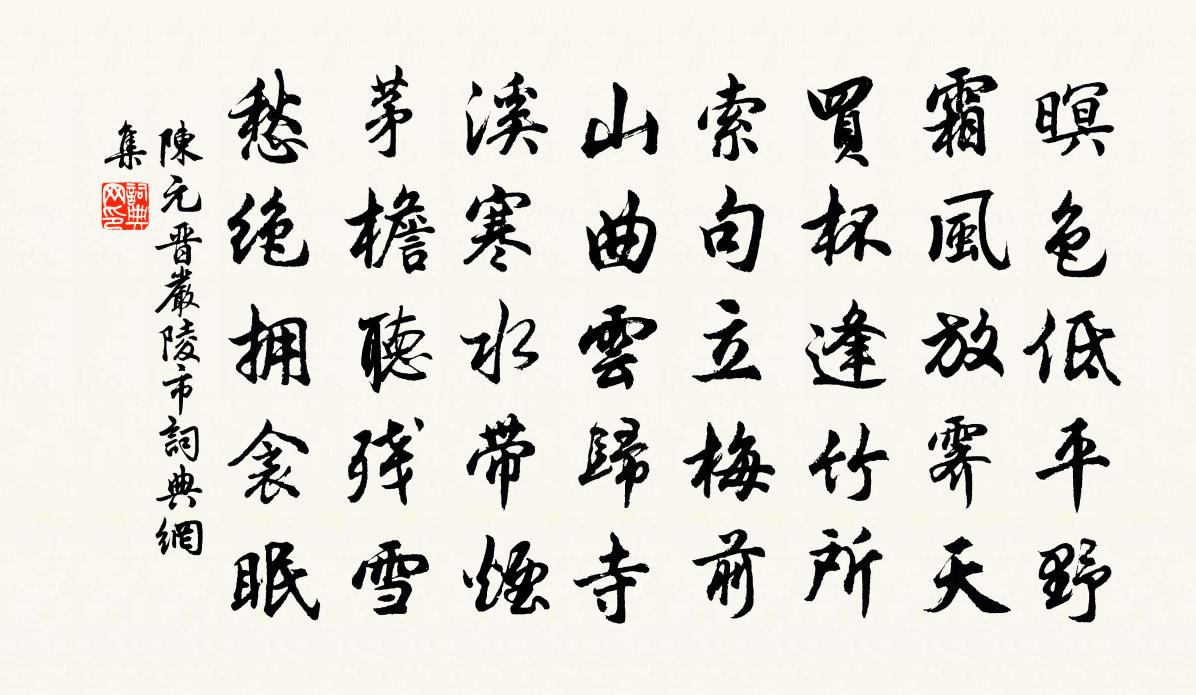 暝色低平野
霜風放霽天
買杯逢竹所
索句立梅前
山曲雲歸寺
溪寒水帶煙
茅檐聽残雪
愁绝拥衾眠
陳元晋嚴陵市詞典網
集
詞典
网印